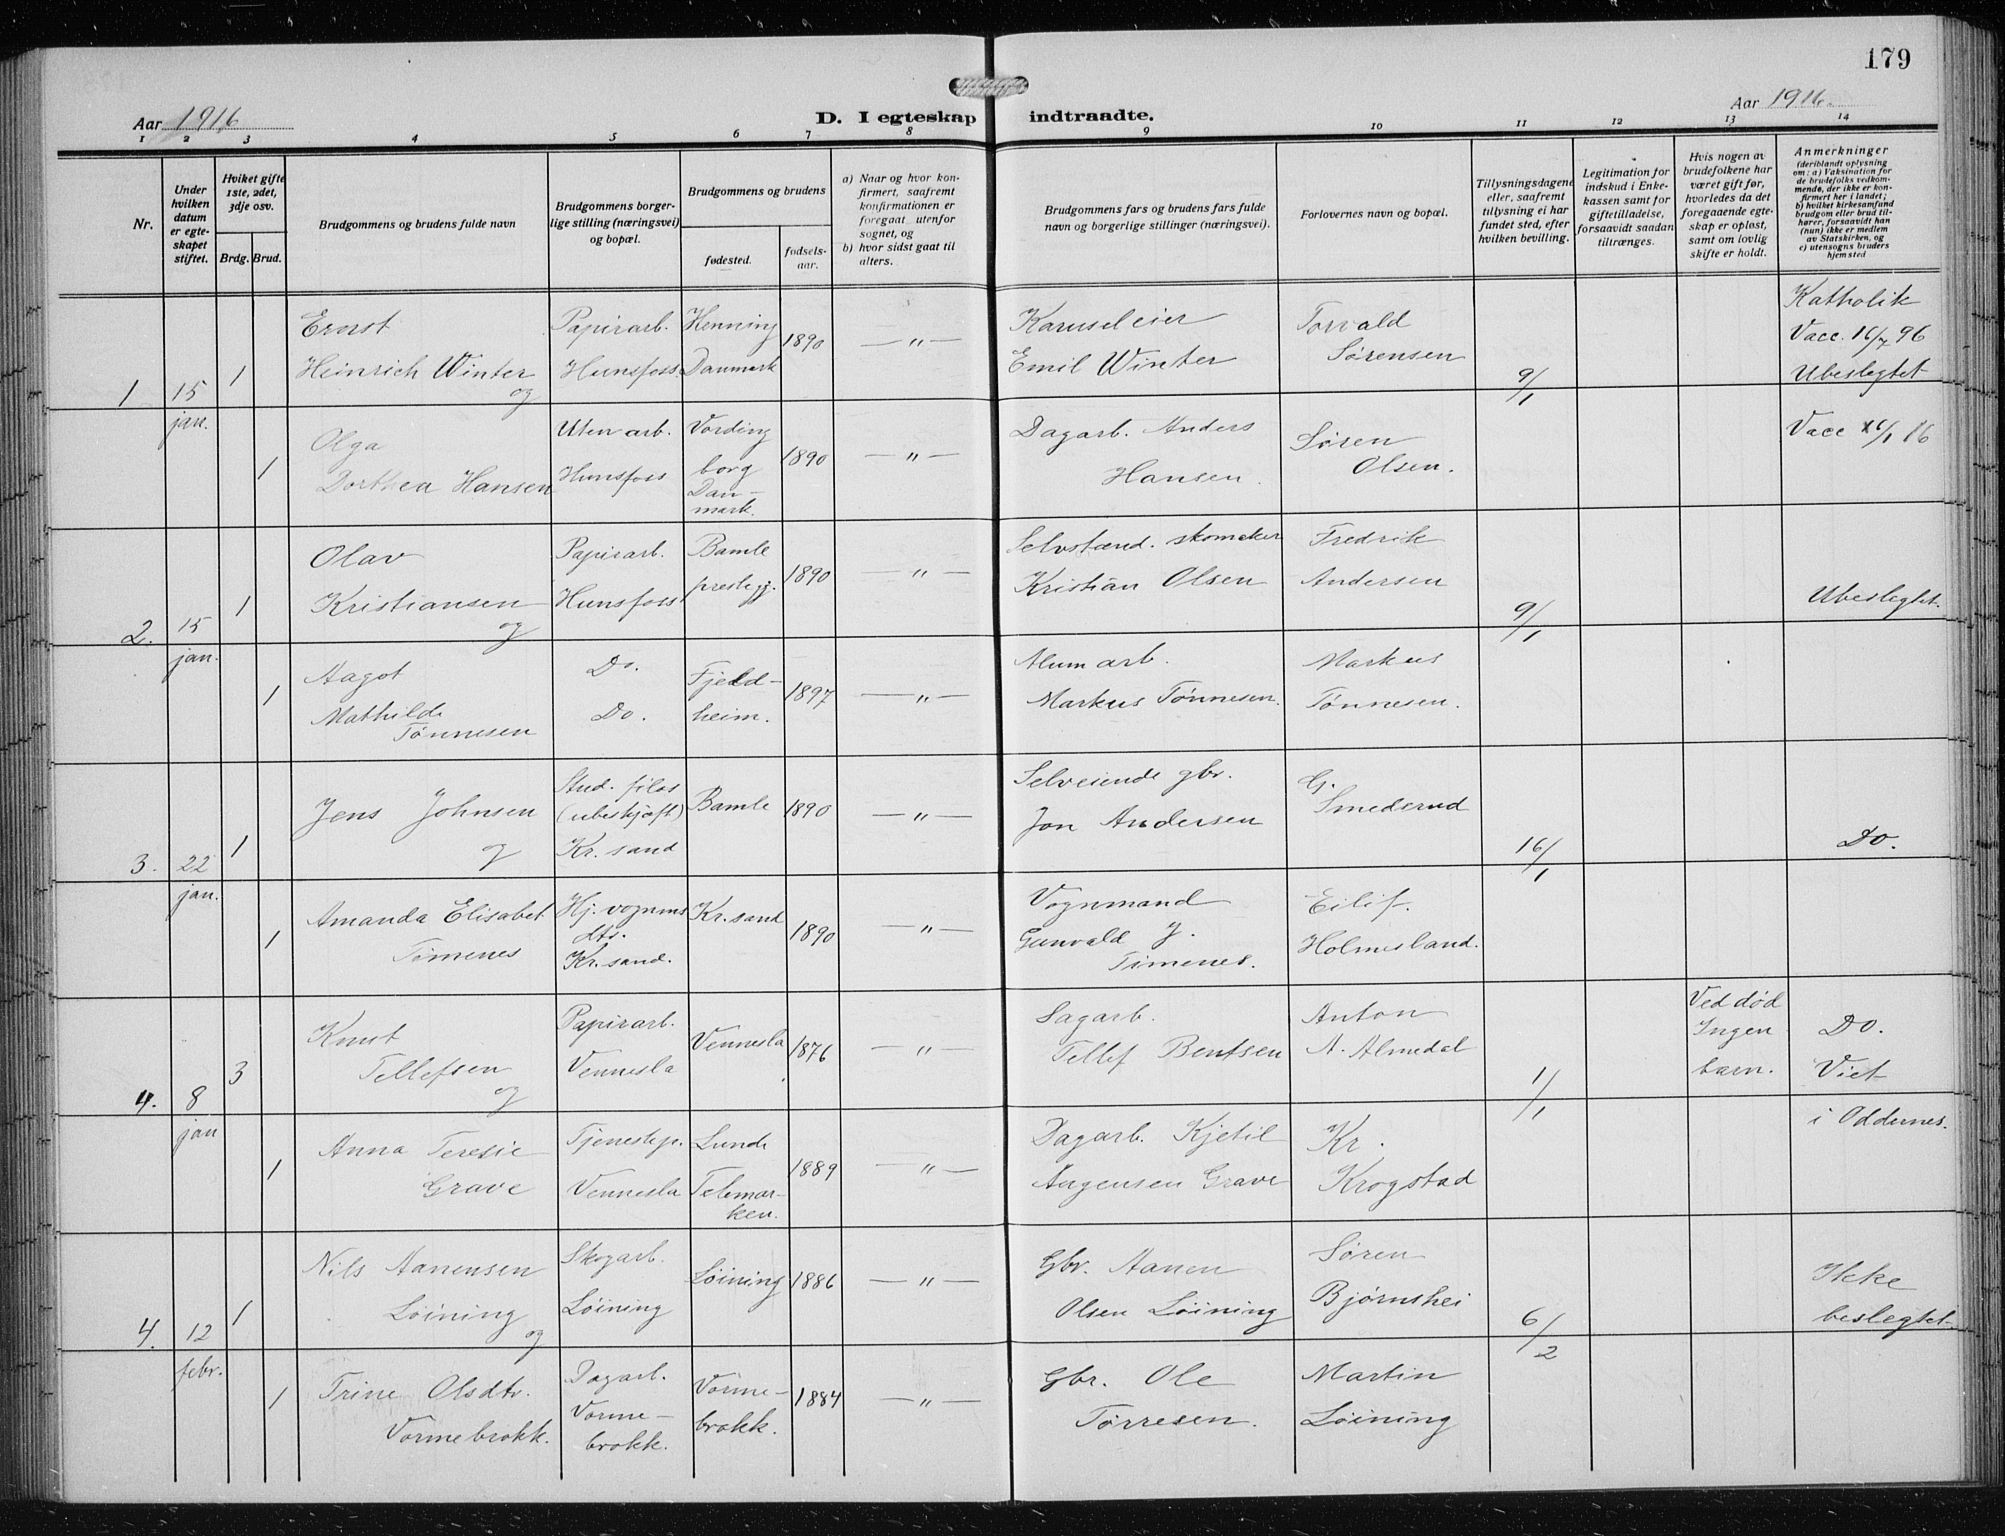 179
Aar 1916
D. I egteskap indtraadte.
Aar 1916.
1 2 3 4 5 6 7 8 9 10 11 12 13 14
Nr.
Under hvilken datum er egteskapet stiftet.
Hviket gifte 1ste, 2det, 3dje osv.
Brdg. Brud.
Brudgommens og brudens fulde navn
Brudgommens borgerlige stilling (næringsvei) og bopæl.
Brudgommens og brudens
fødested.
fødselsaar.
a) Naar og hvor konfirmert, saafremt konfirmationen er foregaat utenfor sognet, og
b) hvor sidst gaat til alters.
Brudgommens fars og brudens fars fulde navn og borgerlige stillinger (næringsvei).
Forlovernes navn og bopæl.
Tillysningsdagene eller, saafremt tillysning ei har fundet sted, efter hvilken bevilling.
Legitimation for indskud i Enkekassen samt for giftetilladelse, forsaavidt saadan tiltrænges.
Hvis nogen av brudefolkene har været gift før, hvorledes da det foregaaende egteskap er opløst, samt om lovlig skifte er holdt.
Anmerkninger
(deriblandt oplysning om: a) Vaksination for de brudefolks vedkommende, der ikke er konfirmert her i landet; b) hvilket kirkesamfund brudgom eller brud tilhører, forsaavidt han (hun) ikke er medlem av Statskirken, og c) utensogns bruders hjemsted
1 15 jan. 1 Ernst Heinrich Winter og Papirarb. Hunsfoss. Henning Danmark 1890 — " — Karuseleier Emil Winter Torvald Sørensen 9/1 Katholik Vacc. 16/7 96 Ubeslegtet
1 Olga Dorthea Hansen Uten arb. Hunsfoss Vordingborg Danmark. 1890 — " — Dagarb. Anders Hansen. Søren Olsen. Vacc 16
2. 15 jan. 1 Olav Kristiansen og Papirarb. Hunsfoss Bamle prestegj. 1890 — " — Selvstænd. skomaker Kristian Olsen Fredrik Andersen 9/1 Ubeslegtet.
1 Aagot Mathilde Tønnesen Do. Do. Fjeldheim. 1897 — " — Alumarb. Markus Tønnesen. Markus Tønnesen.
3. 22 jan. 1 Jens Johnsen og Stud. filos (ubeskjæft) Kr. sand Bamle 1890 — " — Selveiende gbr. Jon Andersen G. Smederud 16/1 Do.
1 Amanda Elisabet Timenes Hj. vognms dtr. Kr. sand. Kr. sand 1890 — " — Vognmand Gunvald J. Timenes. Eilif. Holmesland.
4. 8 jan 3 Knut Tellefsen og Papirarb. Vennesla Vennesla 1876 — " — Sagarb. Tellef Bentsen Anton A. Almedal 1/1 Ved død Ingen barn. Do. Viet i Oddernes.
1 Anna Teresie Grave Tjenestep. Vennesla Lunde Telemarken. 1889 — " — Dagarb. Kjetil Angensen Grave Kr. Krogstad
4. 12 febr. 1 Nils Aanensen Løining og Skogarb. Løining Løining 1886 — " — Gbr. Aanen Olsen Løining Søren Bjørnshei 6/2 Ikke beslegtet.
1 Trine Olsdtr. Vormebrokk. Dagarb. Vormebrokk. Vormebrokk. 1884 — " — Gbr. Ole Tørresen. Martin Løining